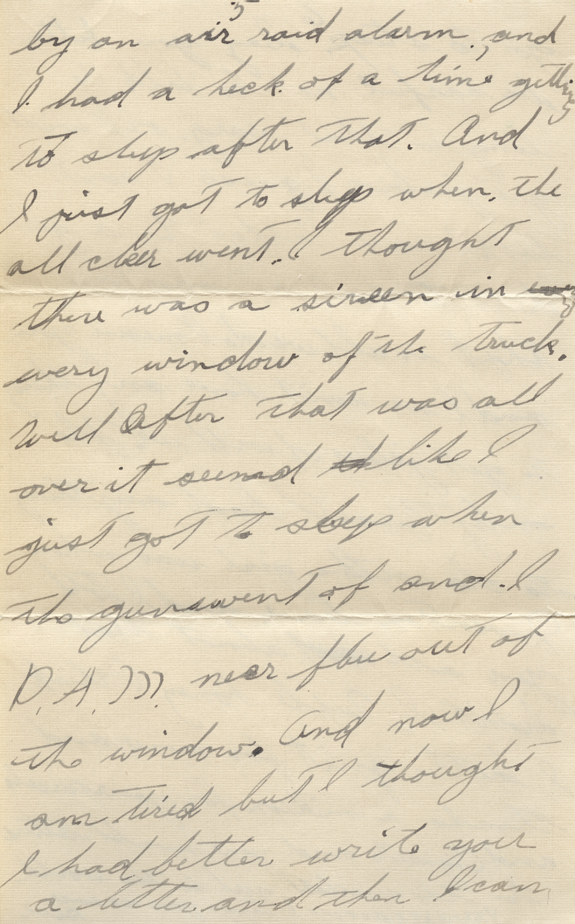 5
by an air raid alarm, and
I had a heck of a time getting
to sleep after that. And
I just got to sleep when, the
all clear went. I thought
there was a sireen in
every window of the truck.
Well After that was all
over it seemed like I
just got to sleep when
the guns went of and. I
P.A.))). near flew out of
the window. And now I
am tired but I thought
I had better write your
a letter and then I can